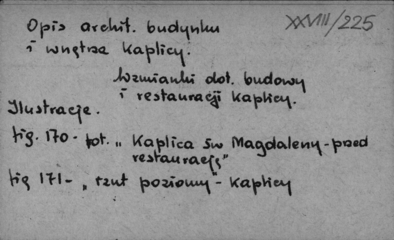 XXVIII/225
Opis archit. budynku
i wnętrza kaplicy.
Wzmianki dot. budowy
i restauracji kaplicy.
Ilustracje.
fig. 170 - fot. „Kaplica św Magdaleny - przed
restauracją"
fig 171 - „rzut poziomy" - kaplicy